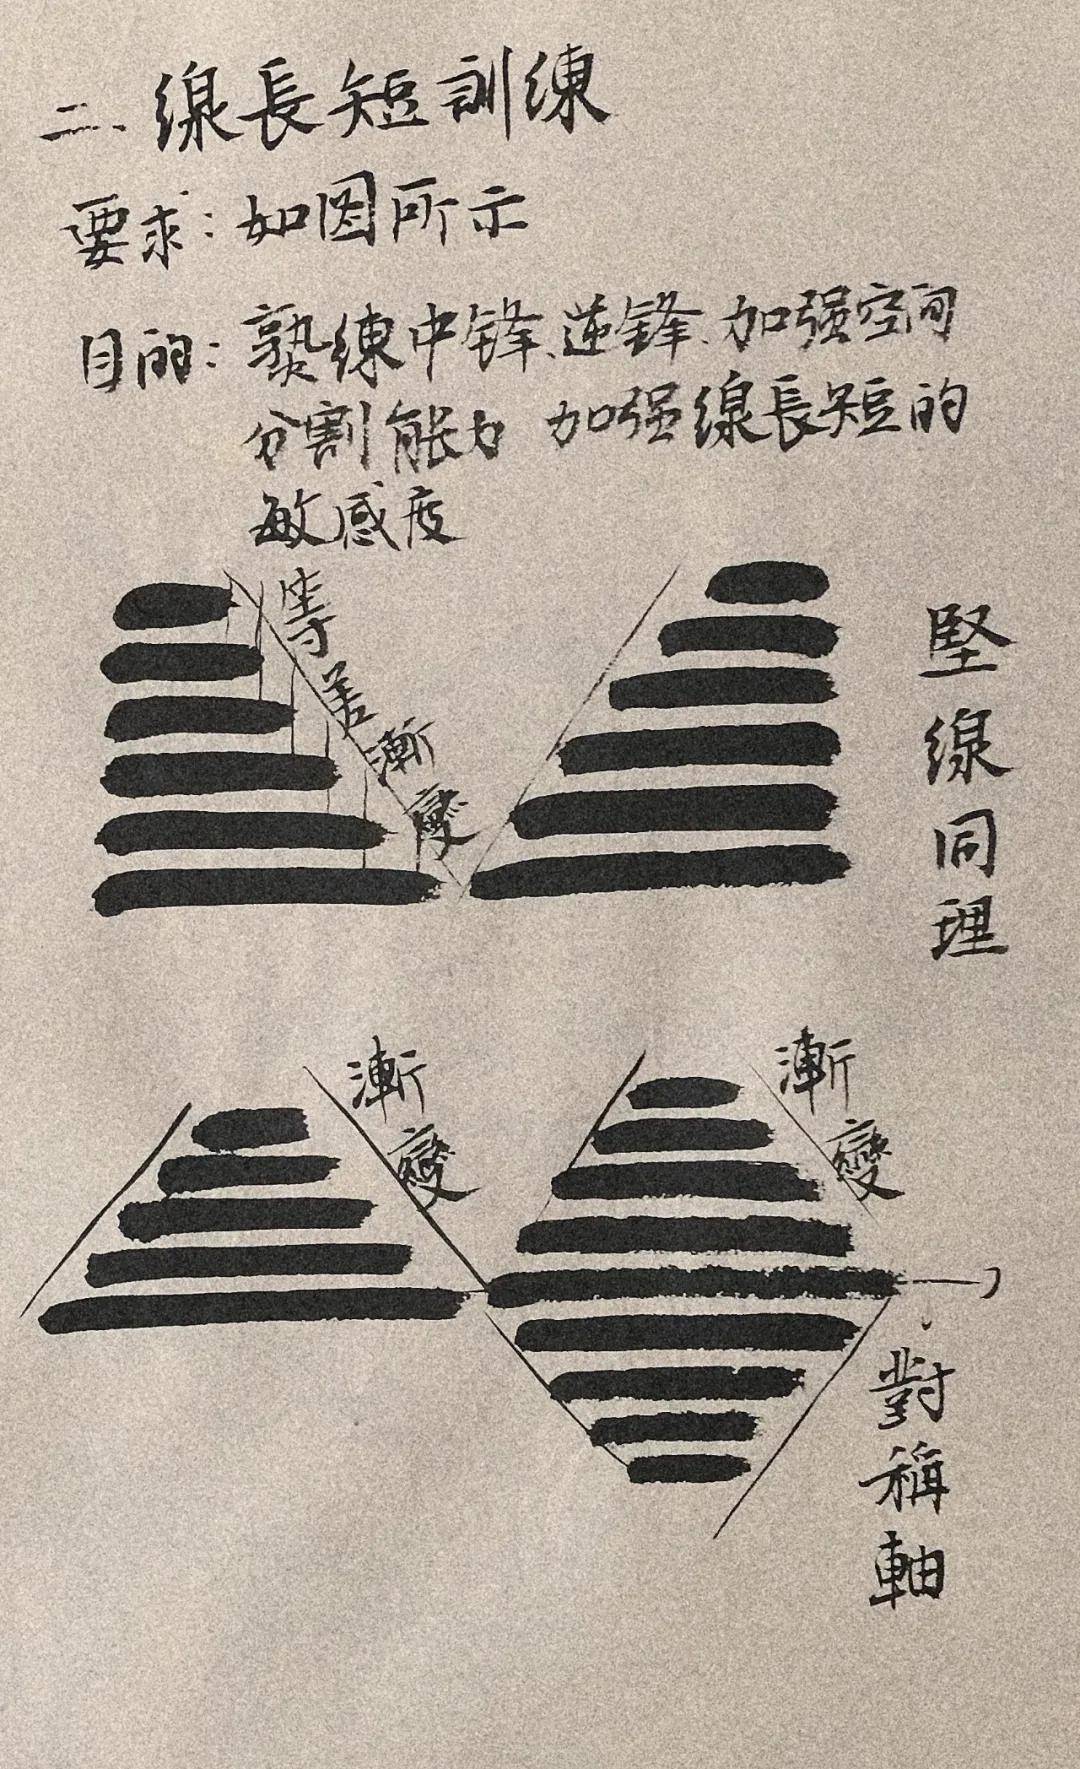 二、線長短訓練
要求：如图所示
目的：熟練中锋、逆锋、加强空间
分割能力 加强線長短的
敏感度
等差漸變
竖線同理
漸變
漸變
對稱軸